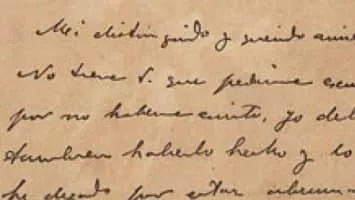 Mi distinguido y querido amigo
No tiene V. que pedirme escu
por no haberme escrito, yo deb
tambien haberlo hecho y lo
he dejado por estar abrum